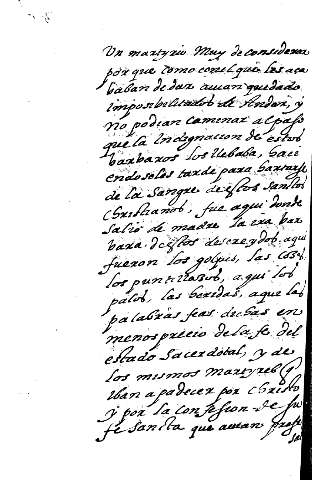 Un martyrio Muy de considerar
porque como con el que les aca
baban de dar auian quedado
imposibilitados de Andar, y
no podian caminar al paso
que la Indignacion de estos
barbaros los lleuaba, haci
endoseles tarde para hartarse
de la Sangre de estos santos
Christianos, fue aqui donde
salio de madre la ira bar
bara de estos descreydos, aqui
fueron los golpes, las coses
los puntillasos, aqui los
palos, las heridas, aqui las
palabras feas dichas en
menosprecio de la fe, del
estado sacerdotal, y de
los mismos Martyres q
iban a padecer por Christo
y por la Confesion de su
fe Sancta que auian profe